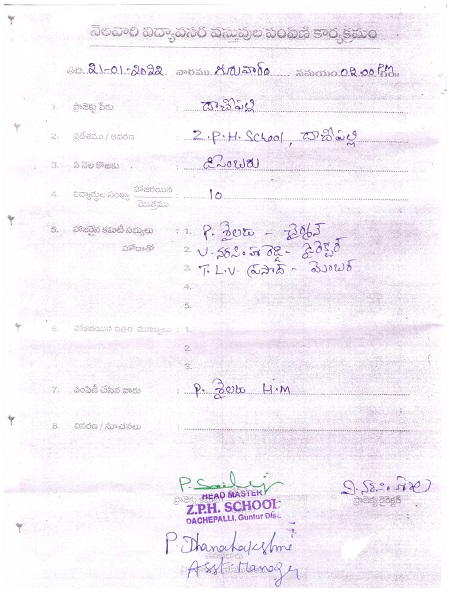 నెలవారి విద్యావసర వస్తువుల పంపిణి కార్యక్రమం
తేది. 21-01-2022 వారము గురువారం సమయం 02.00 P.M గం॥
1. ప్రాజెక్టు పేరు : దాచేపల్లి
2. ప్రదేశము / ఆవరణ : Z.P.H. School, దాచేపల్లి
3. ఏ నెల కొఱకు : డిసెంబరు
4. విద్యార్థుల సంఖ్య హాజరయిన / మొత్తము : 10
5. హాజరైన కమిటి సభ్యులు : 1. P. శైలజ - చైర్మన్
హోదాతో 2. V. నరసింహారెడ్డి - డైరెక్టర్
3. T. L. V ప్రసాద్ - మెంబర్
4.
5.
6. హాజరయిన ఇతర ముఖ్యులు : 1.
2.
3.
7. పంపిణీ చేసిన వారు : P. శైలజ H.M
8. వివరణ / సూచనలు :
HEAD MASTER
Z.P.H. SCHOOL
DACHEPALLI, Guntur Dist.
ప్రాజెక్టు డైరెక్టర్
P. Dhanalakshmi
Asst. Manager